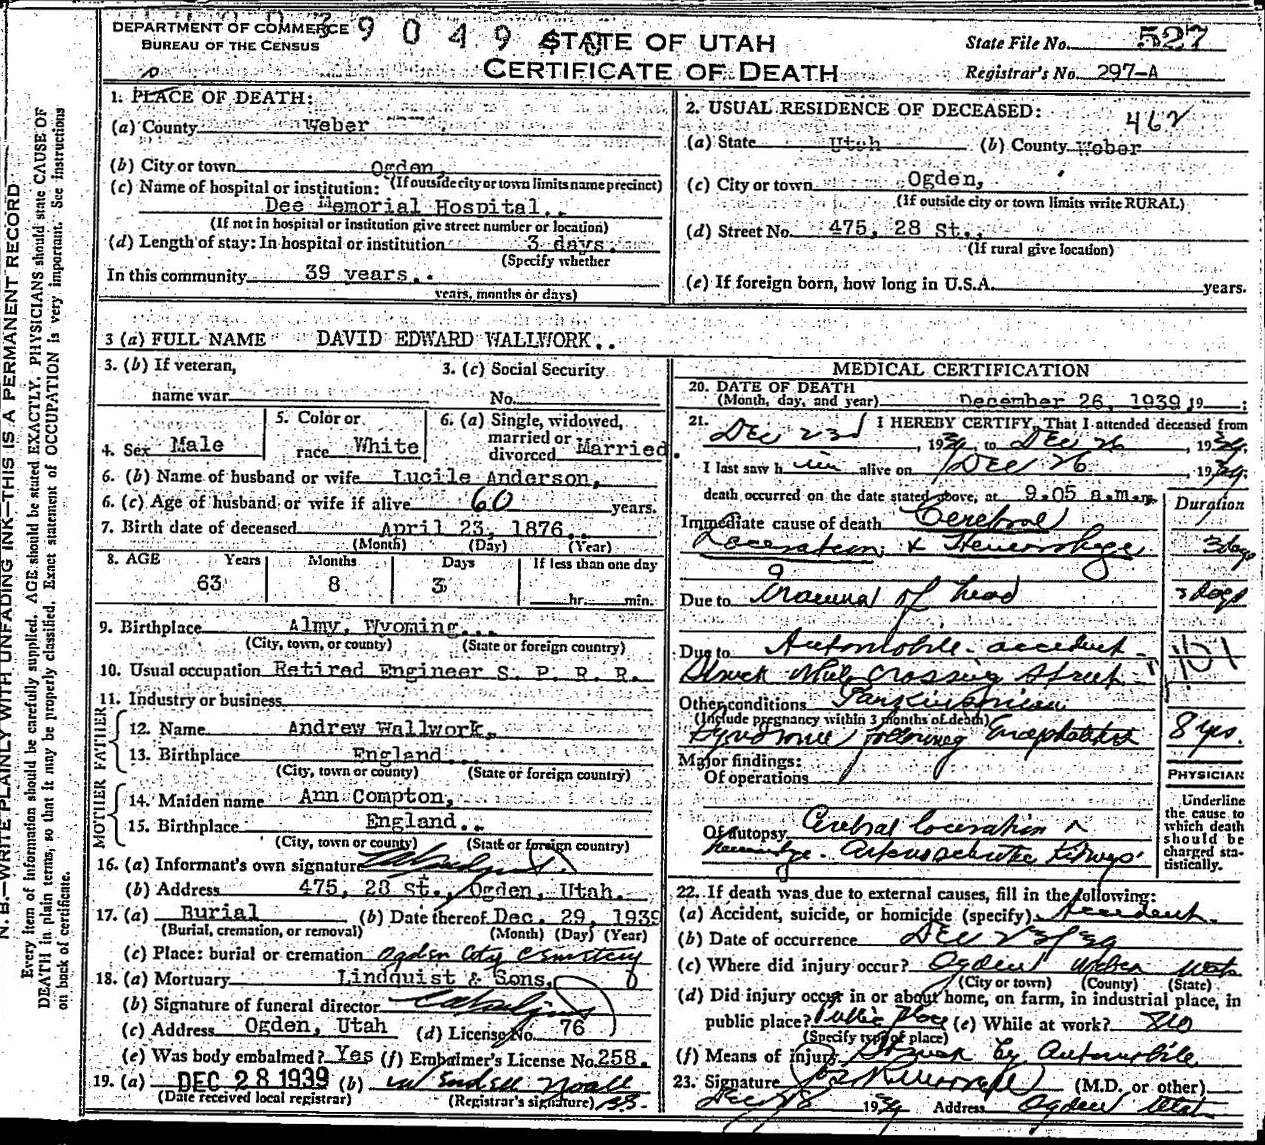 DEPARTMENT OF COMMERCE
BUREAU OF THE CENSUS
3 9 0 4 9 4
STATE OF UTAH
CERTIFICATE OF DEATH
State File No. 527
Registrar's No. 297-A
N. B.—WRITE PLAINLY WITH UNFADING INK—THIS IS A PERMANENT RECORD
Every item of information should be carefully supplied. AGE should be stated EXACTLY. PHYSICIANS should state CAUSE OF
DEATH in plain terms, so that it may be properly classified. Exact statement of OCCUPATION is very important. See instructions
on back of certificate.
1. PLACE OF DEATH:
(a) County Weber
(b) City or town Ogden,
(If outside city or town limits name precinct)
(c) Name of hospital or institution:
Dee Memorial Hospital..
(If not in hospital or institution give street number or location)
(d) Length of stay: In hospital or institution 3 days.
(Specify whether
In this community 39 years..
years, months or days)
2. USUAL RESIDENCE OF DECEASED:
462
(a) State Utah (b) County Weber
(c) City or town Ogden,
(If outside city or town limits write RURAL)
(d) Street No. 475, 28 St.,
(If rural give location)
(e) If foreign born, how long in U.S.A. years.
3 (a) FULL NAME DAVID EDWARD WALLWORK..
3. (b) If veteran,
name war
3. (c) Social Security
No.
4. Sex Male
5. Color or
race White
6. (a) Single, widowed,
married or
divorced Married.
6. (b) Name of husband or wife Lucile Anderson,
6. (c) Age of husband or wife if alive 60 years.
7. Birth date of deceased April 23, 1876..
(Month) (Day) (Year)
8. AGE Years Months Days If less than one day
63 8 3 hr. min.
9. Birthplace Almy, Wyoming...
(City, town, or county) (State or foreign country)
10. Usual occupation Retired Engineer S. P. R. R.
11. Industry or business
FATHER
12. Name Andrew Wallwork,
13. Birthplace England...
(City, town or county) (State or foreign country)
MOTHER
14. Maiden name Ann Compton,
15. Birthplace England..
(City, town or county) (State or foreign country)
16. (a) Informant's own signature
(b) Address 475, 28 St., Ogden, Utah.
17. (a) Burial (b) Date thereof Dec. 29, 1939
(Burial, cremation, or removal) (Month) (Day) (Year)
(c) Place: burial or cremation Ogden City Cemetery
18. (a) Mortuary Lindquist & Sons,
(b) Signature of funeral director
(c) Address Ogden, Utah (d) License No. 76
(e) Was body embalmed? Yes (f) Embalmer's License No. 258.
19. (a) DEC 28 1939 (b)
(Date received local registrar) (Registrar's signature)
MEDICAL CERTIFICATION
20. DATE OF DEATH
(Month, day, and year) December 26, 1939, 19 ;
21. I HEREBY CERTIFY, That I attended deceased from
Dec 23d, 1939 to Dec 26, 1939.
I last saw him alive on Dec 26, 1939.
death occurred on the date stated above, at 9.05 a.m. m.
Duration
Immediate cause of death Cerebral
Laceration & Hemorrhage 3 days
Due to Trauma of head 3 days
Due to Automobile accident
Struck while crossing Street
Other conditions Parkinsonian
(Include pregnancy within 3 months of death)
Syndrome following Encephalitis 8 yrs.
Major findings:
Of operations
Of autopsy Cerebral laceration
hemorrhage. Arteriosclerotic Kidneys
PHYSICIAN
Underline
the cause to
which death
should be
charged sta-
tistically.
22. If death was due to external causes, fill in the following:
(a) Accident, suicide, or homicide (specify) Accident.
(b) Date of occurrence Dec 23/39
(c) Where did injury occur? Ogden Weber Utah
(City or town) (County) (State)
(d) Did injury occur in or about home, on farm, in industrial place, in
public place? Public Place (e) While at work? No
(Specify type of place)
(f) Means of injury Struck by Automobile
23. Signature (M.D. or other)
Dec 28 1939 Address Ogden Utah